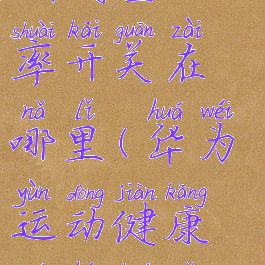 shuài kāi guān zài
率开关在
nǎ lǐ huá wéi
哪里(华为
yùn dòng jiàn kāng
运动健康